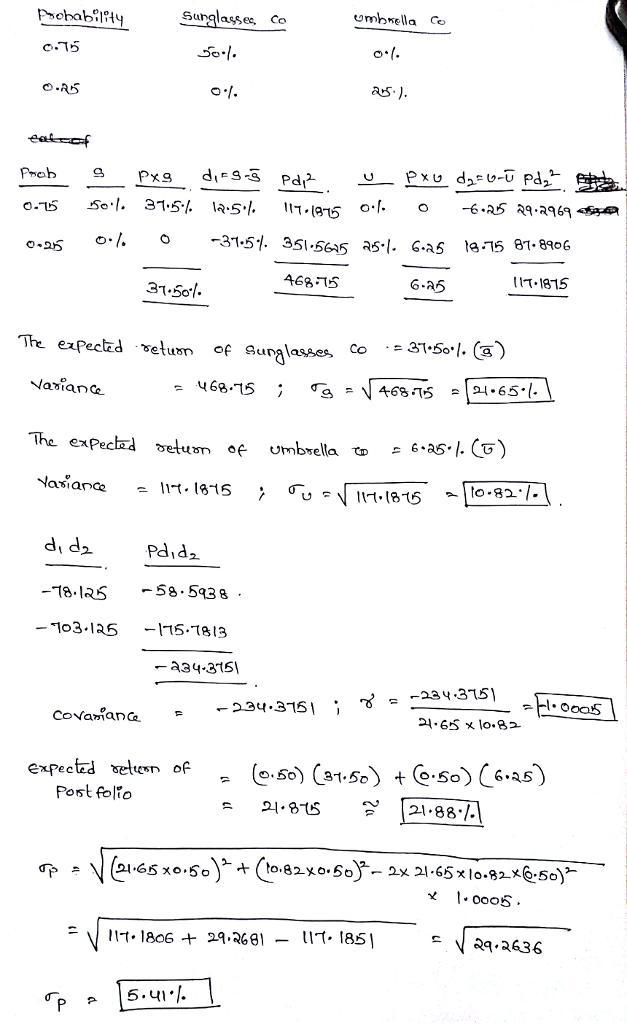 Probability Sunglasses Co Umbrella Co
0.75 50% 0%
0.25 0% 25%
Prob S PxS d₁=S-S̄ Pd₁² U PxU d₂=U-Ū Pd₂²
0.75 50% 37.5% 12.5% 117.1875 0% 0 -6.25 29.2969
0.25 0% 0 -37.5% 351.5625 25% 6.25 18.75 87.8906
37.50% 468.75 6.25 117.1875
The expected return of Sunglasses Co = 37.50% (S̄)
Variance = 468.75 ; σs = √468.75 = 21.65%
The expected return of Umbrella co = 6.25% (Ū)
Variance = 117.1875 ; σu = √117.1875 = 10.82%
d₁d₂ Pd₁d₂
-78.125 -58.5938
-703.125 -175.7813
-234.3751
Covariance = -234.3751 ; r = -234.3751 / 21.65 x 10.82 = -1.0005
Expected return of Portfolio = (0.50) (37.50) + (0.50) (6.25)
= 21.875 ≅ 21.88%
σp = √(21.65 x 0.50)² + (10.82 x 0.50)² - 2x 21.65 x 10.82 x (0.50)²
x 1.0005
= √117.1806 + 29.2681 - 117.1851 = √29.2636
σp = 5.41%